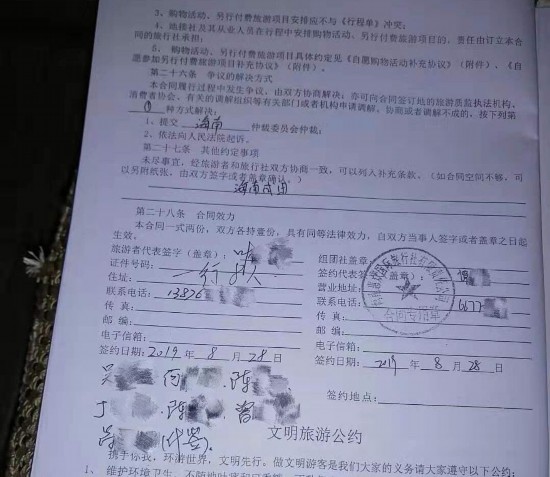 3、购物活动、另行付费旅游项目安排应不与《行程单》冲突;
4、地接社及其从业人员在行程中安排购物活动、另行付费旅游项目的,责任由订立本合
同的旅行社承担;
5、购物活动、另行付费旅游项目具体约定见《自愿购物活动补充协议》(附件)、《自
愿参加另行付费旅游项目补充协议》(附件)。
第二十六条 争议的解决方式
本合同履行过程中发生争议,由双方协商解决;亦可向合同签订地的旅游质监执法机构、
消费者协会、有关的调解组织等有关部门或者机构申请调解。协商或者调解不成的,按下列第
① 种方式解决:
1、提交 海南 仲裁委员会仲裁;
2、依法向人民法院起诉。
第二十七条 其他约定事项
未尽事宜,经旅游者和旅行社双方协商一致,可以列入补充条款。(如合同空间不够,可
以另附纸张,由双方签字或者盖章确认。)
海南
第二十八条 合同效力
本合同一式两份,双方各持壹份,具有同等法律效力,自双方当事人签字或者盖章之日起
生效。
旅游者代表签字(盖章):
证件号码:
住址:
联系电话: 13876
传 真:
邮 编:
电子信箱:
签约日期: 2019 年 8 月 28 日
组团社盖章:
签约代表签 盖章):
营业地址:
联系电话:
传 真:
合同专用章
邮 编:
电子信箱:
签约日期: 2019 年 8 月 28 日
签约地点:
吴 何 陈
丁 陈
(代签).
文明旅游公约
携手你我,环游世界,文明先行。做文明游客是我们大家的义务请大家遵守以下公约:
1、维护环境卫生。不随地吐痰和口香糖,